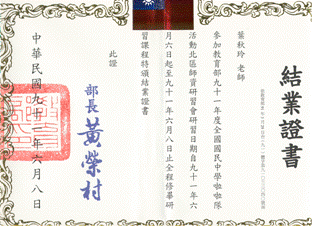 結業證書
葉秋玲 老師
參加教育部九十一年度全國國民中學啦啦隊
活動北區師資研習會研習日期自九十一年六
月六日起至九十一年六月八日止全程修畢研
習課程特頒結業證書
此證
部長 黃榮村
中華民國九十一年六月八日